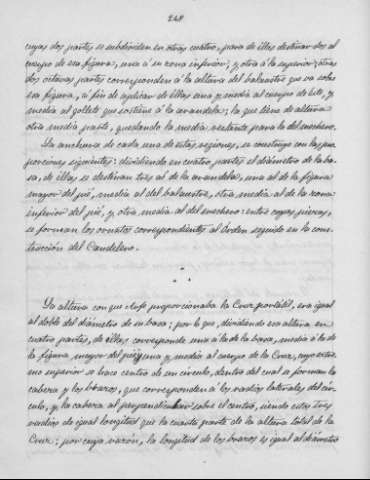 248
cuyas dos partes se subdividen en otras cuatro, para de ellas destinar dos al
cuerpo de esa figura, una á su zona inferior; y otra á la superior: otras
dos octavas partes corresponden á la altura del balaustre que va sobre
esa figura, á fin de aplicar de ellas una y media al cuerpo de este, y
media al gollete que sostiene á la arandela; la que tiene de altura
otra media parte, quedando la media restante para la del mechero.
La anchura de cada una de estas regiones, se construye con las pro-
porciones siguientes: dividiendo en cuatro partes el diámetro de la ba-
sa, de ellas se destinan tres al de la arandela, una al de la figura
mayor del pié, media al del balaustre, otra media al de la zona
inferior del pié, y otra media al del mechero: entre cuyas piezas,
se forman los ornatos correspondientes al órden seguido en la cons-
trucción del Candelero.
* *
La altura con que Arfe proporcionaba la Cruz portátil, era igual
al doble del diámetro de su basa; por lo que, dividiendo esa altura en
cuatro partes, de ellas, corresponde una á la de la basa, media á la de
la figura mayor del pié, y una y media al cuerpo de la Cruz, cuyo estre-
mo superior se hace centro de un círculo, dentro del cual se forman la
cabeza y los brazos, que corresponden á los radios laterales del cír-
culo, y la cabeza al perpendicular sobre el centro, siendo estos tres
radios de igual longitud que la cuarta parte de la altura total de la
Cruz; por cuya razón, la longitud de los brazos es igual al diámetro